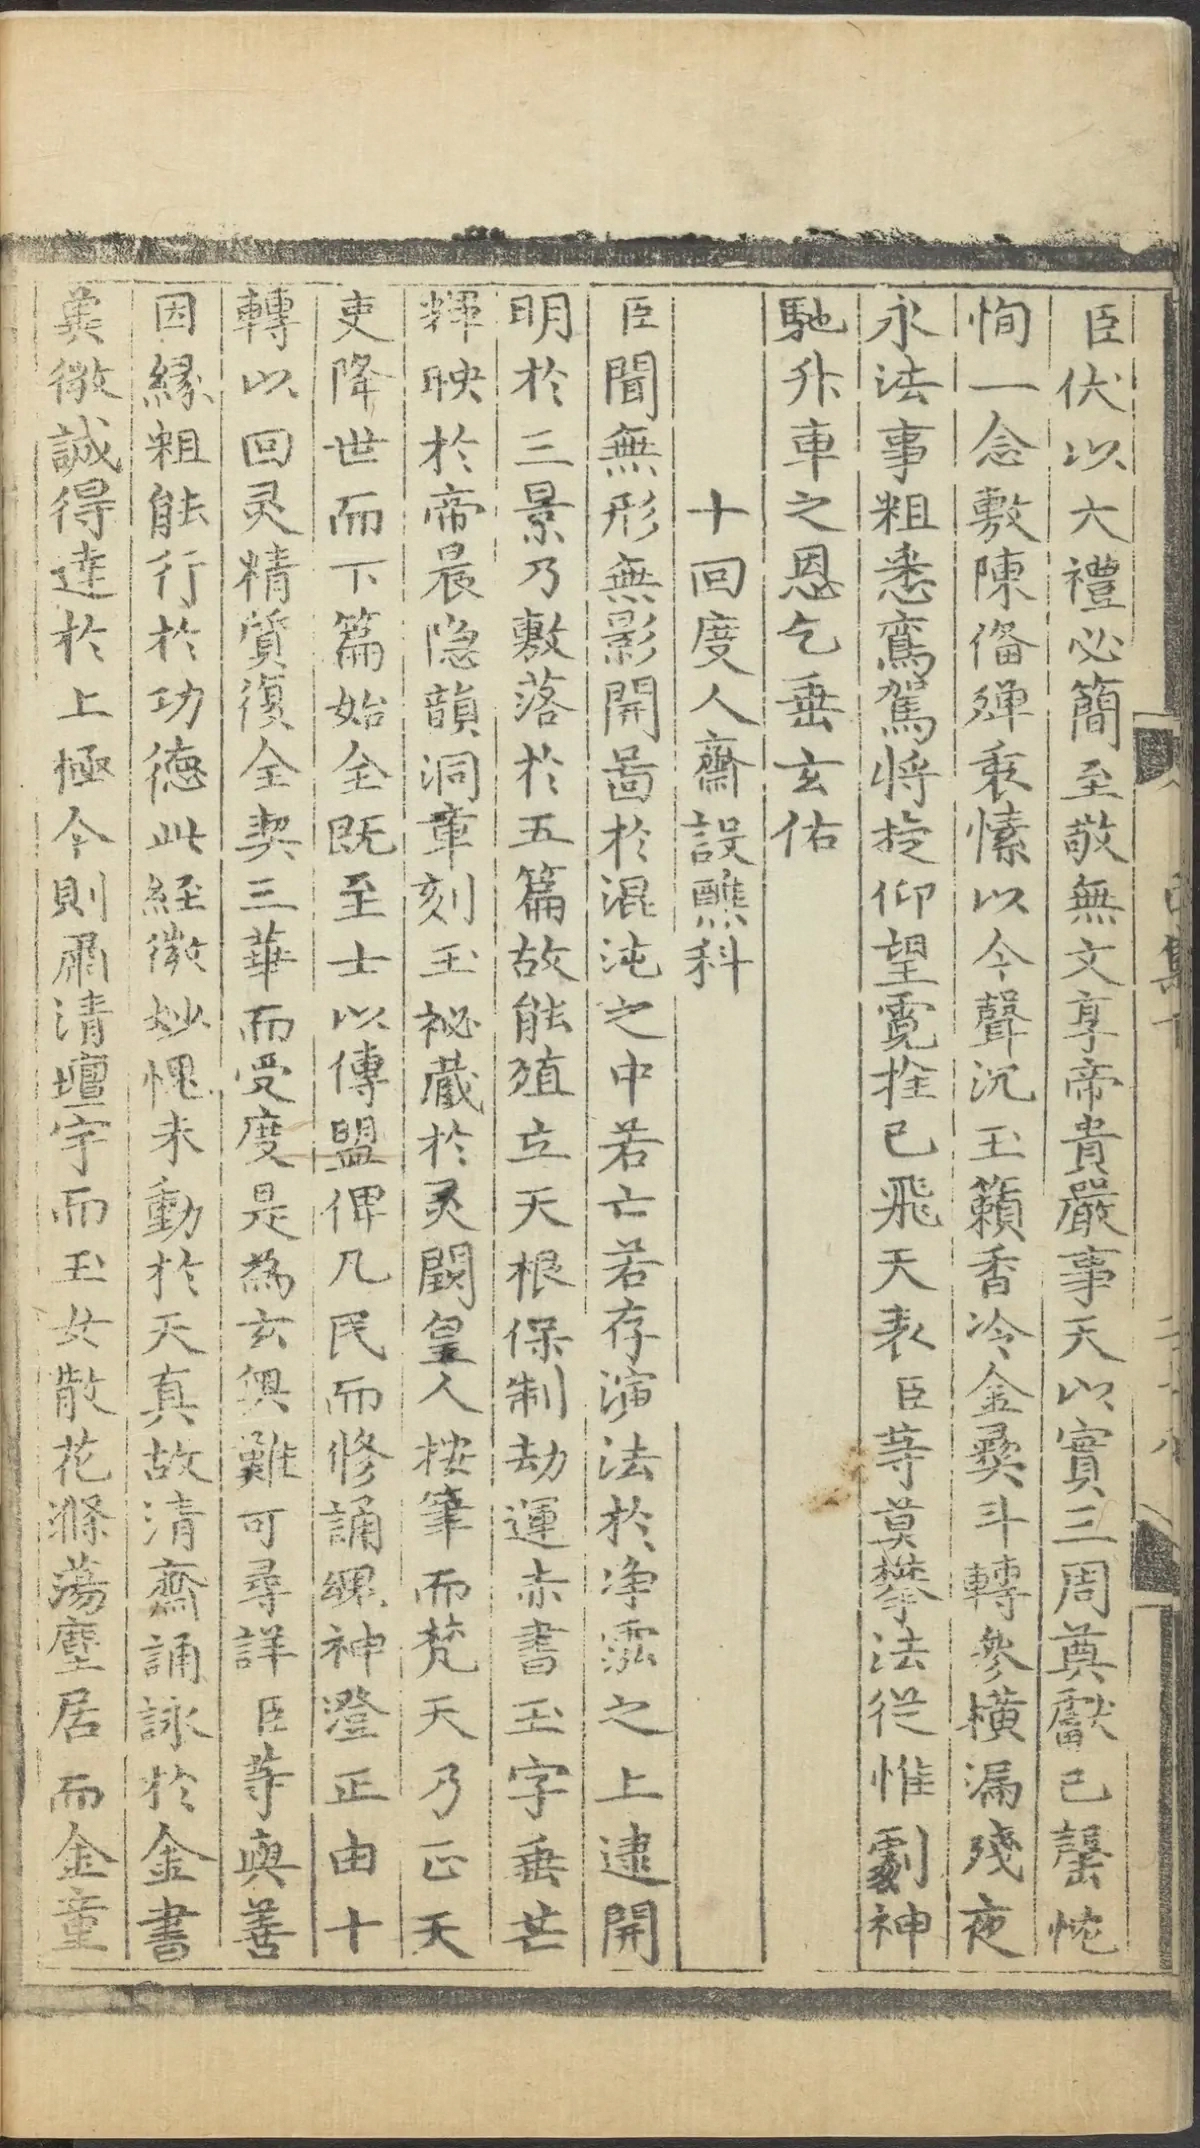 臣伏以大禮必簡至敬無文享帝貴嚴事天以實三周奠獻已罄忱
恂一念敷陳俻殚衷愫以今聲沉玉籟香冷金彛斗轉參橫漏殘夜
永法事粗悉鸞駕將旋仰望霓拴已飛天表臣等莫攀法從惟劇神
馳升車之恩乞垂玄佑
十回度人齋設醮科
臣聞無形無影開啚於混沌之中若亡若存演法於净泓之上逮開
明於三景乃敷落於五篇故能殖立天根保制劫運赤書玉字垂芒
輝映於帝晨隐韻洞章刻玉祕蔵於灵闕皇人按筆而梵天乃正天
吏降世而下篇始全既至士以傳盟俾凡民而修誦緫神澄正由十
轉以回灵精質復全契三華而受度是為玄奥難可尋詳臣等與善
因縁粗能行於功德此経微妙愧未動於天真故清齋誦詠於金書
兾微誠得達於上極今則肅清壇宇而玉女散花滌蕩塵居而金童